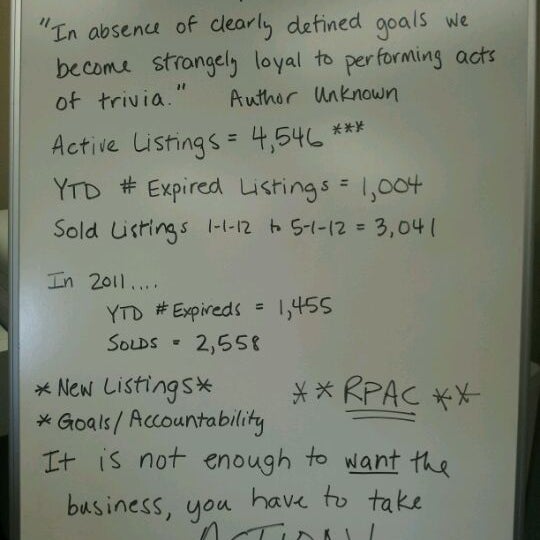 "In absence of clearly defined goals we
become strangely loyal to performing acts
of trivia." Author Unknown
Active Listings = 4,546 ***
YTD # Expired Listings = 1,004
Sold Listings 1-1-12 to 5-1-12 = 3,041
In 2011....
YTD # Expireds = 1,455
SOLDS = 2,558
* New Listings*
* * RPAC * *
* Goals/Accountability
It is not enough to want the
business, you have to take
ACTION!